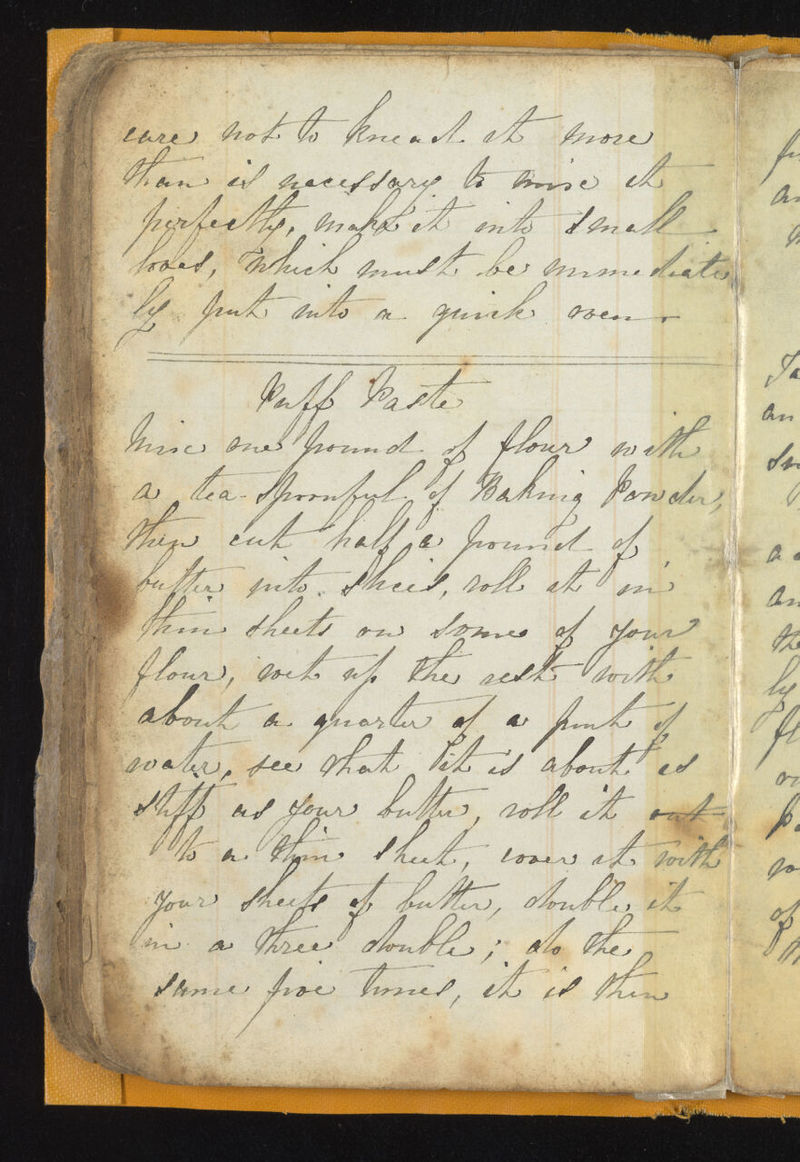 care not to knead it more
than is necessary to mix it
perfectly, make it into small
loves, which must be immediate
ly put into a quick oven.
Puff Paste
Mix one pound of flour with
a tea-spoonful of Baking Powder,
then cut half a pound of
butter into slices, roll it in
thin sheets on some of your
flour, wet up the rest with
about a quarter of a pint of
water, see that it is about as
stiff as your butter, roll it out
to a thin sheet, cover it with
your sheets of butter, double it
in a three double; do the
same five times, it is then